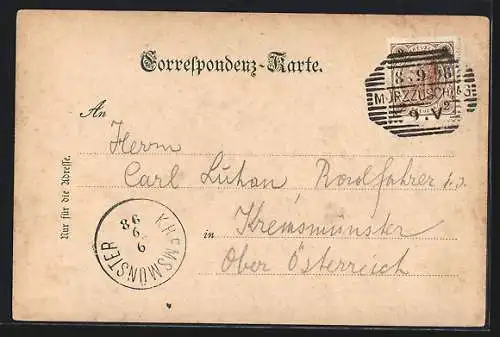 Correspondenz-Karte.
8. 9. 98
MÜRZZUSCHLAG
9. V
An
Herrn
Carl
in Kremsmünster
Ober Österreich
Nur für die Adresse.
KREMSMÜNSTER
9 9 98